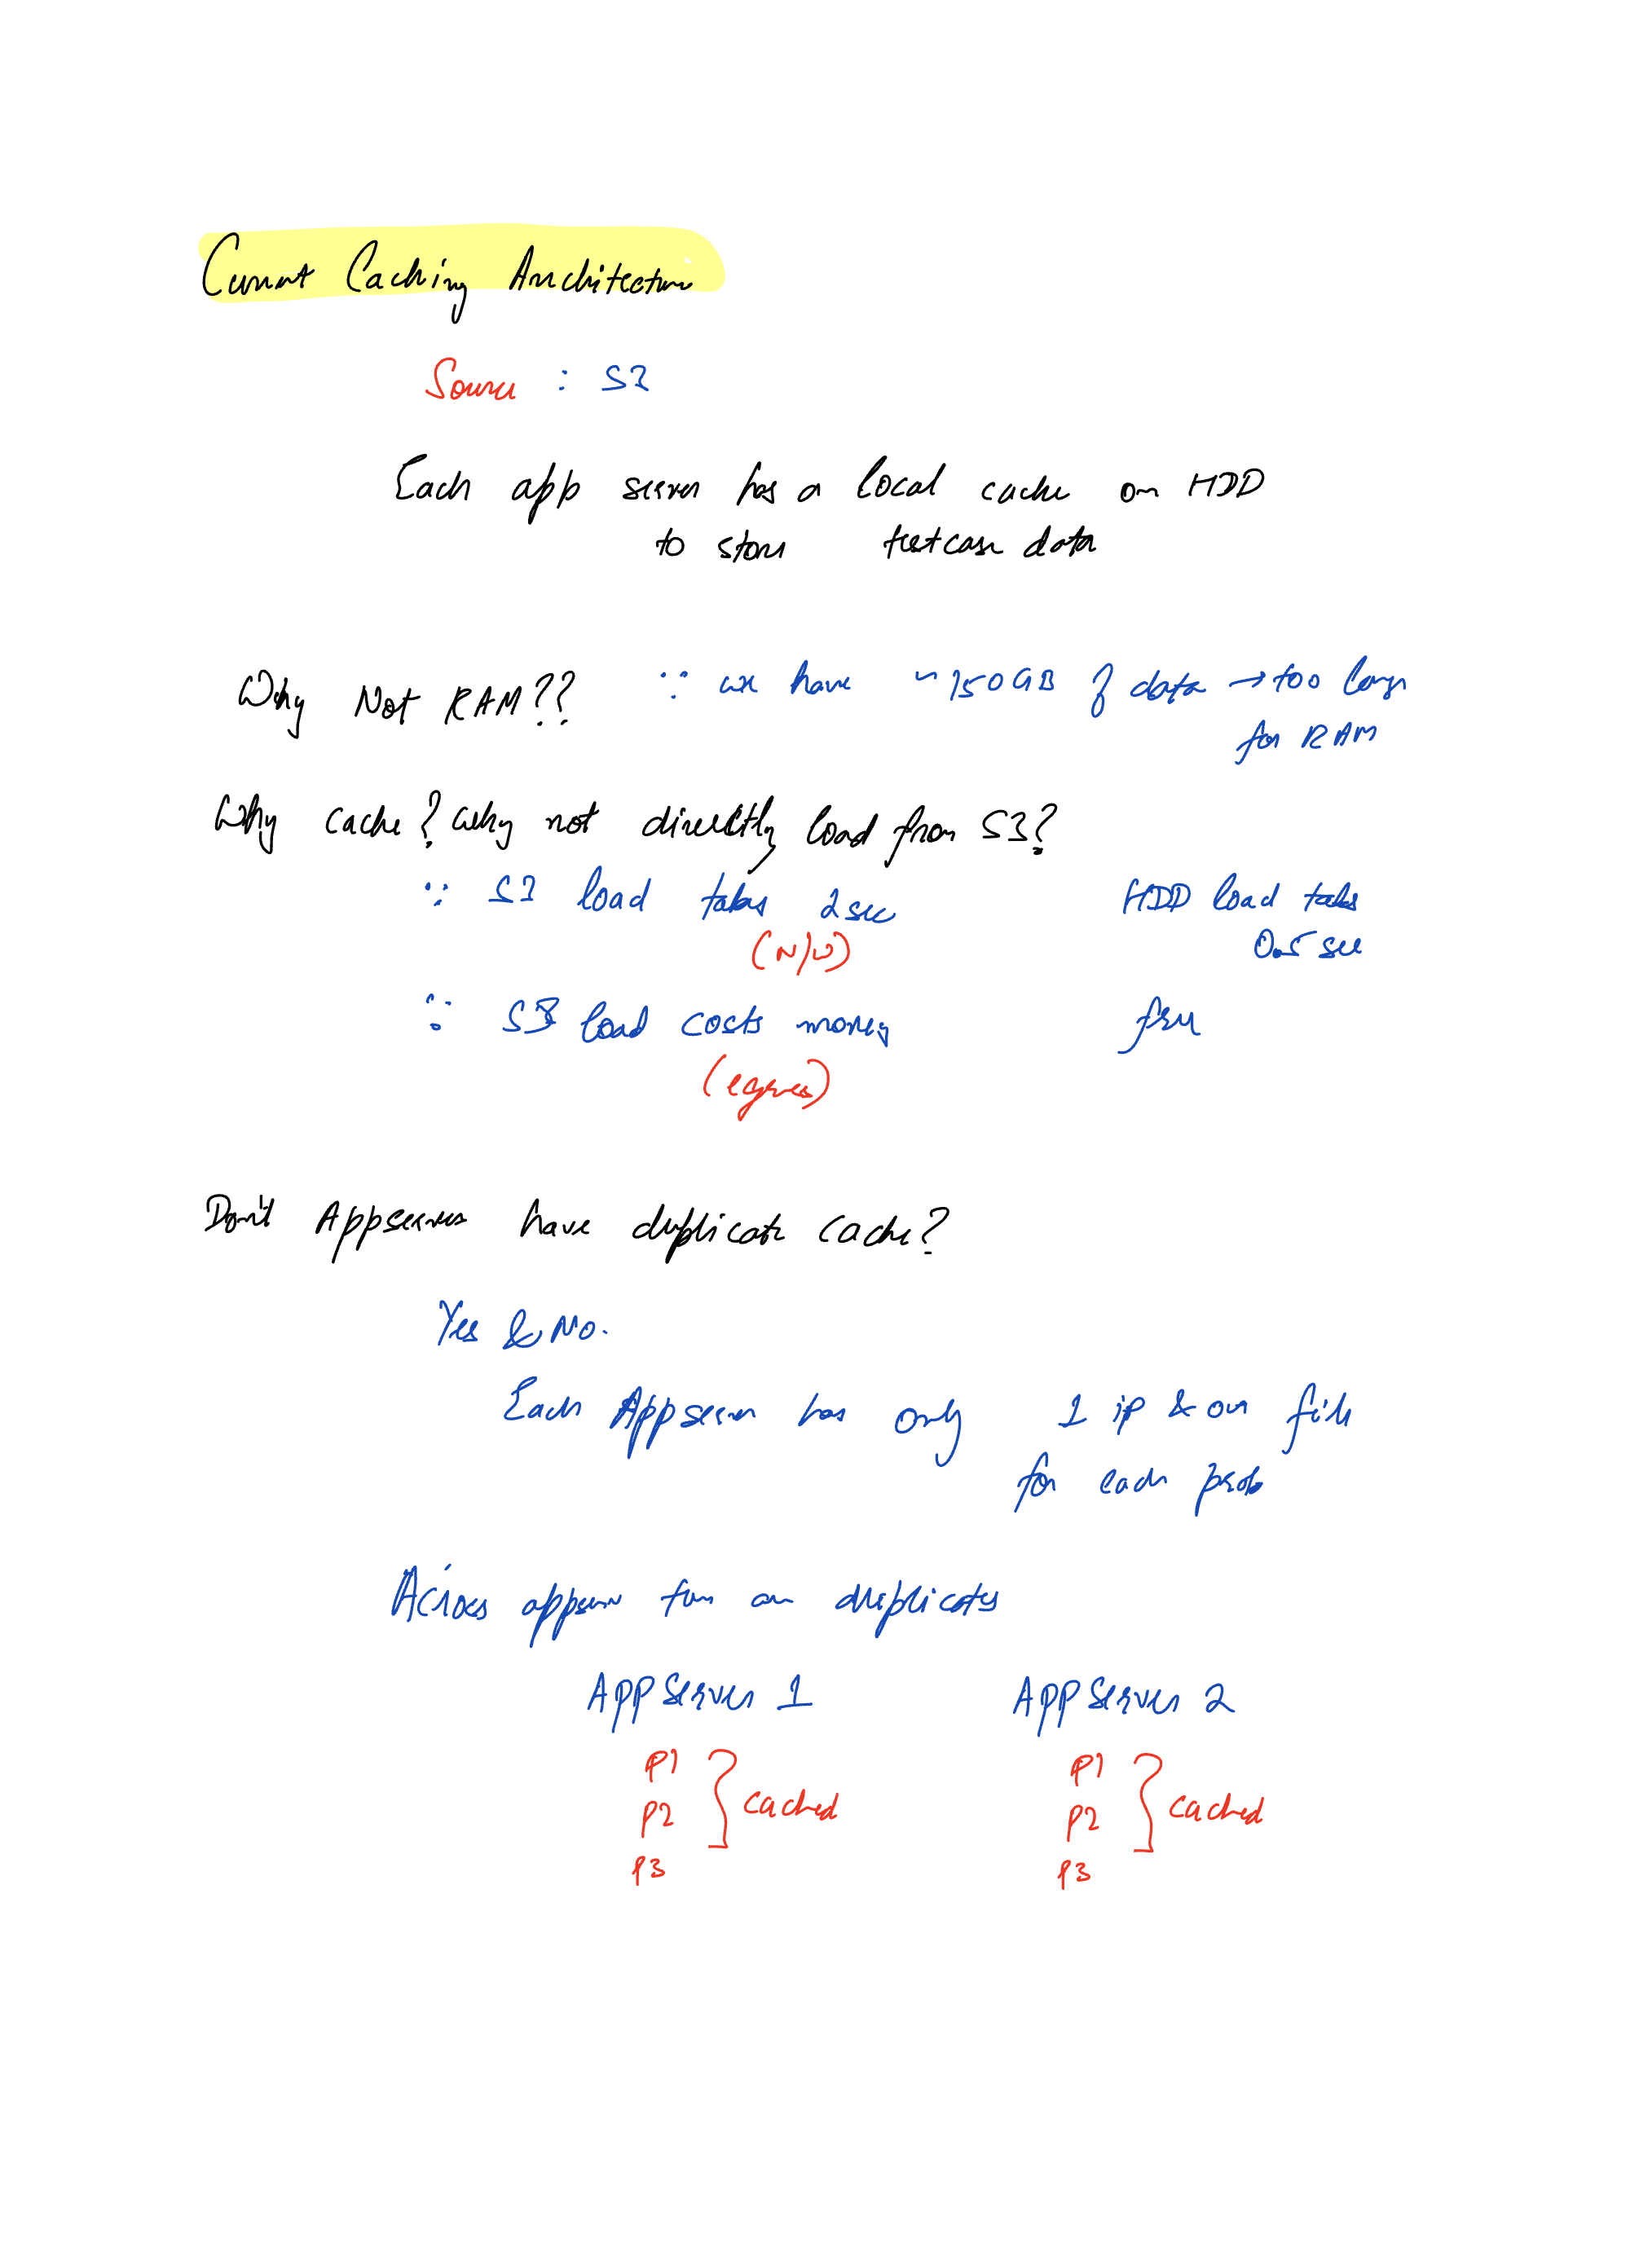 Current Caching Architecture
Source : S3
Each app server has a local cache on HDD
to store testcase data
Why Not RAM?? ∵ we have ~150GB of data → too large
for RAM
Why cache? Why not directly load from S3?
∵ S3 load takes 2sec HDD load takes
(N/W) 0.5 sec
∵ S3 load costs money free
(egress)
Don't Appservers have duplicate cache?
Yes & No.
Each Appserver has only 1 ip & one file
for each prob
Across appserver there are duplicates
APP Server 1 APP Server 2
P1 P1
P2 } cached P2 } cached
P3 P3